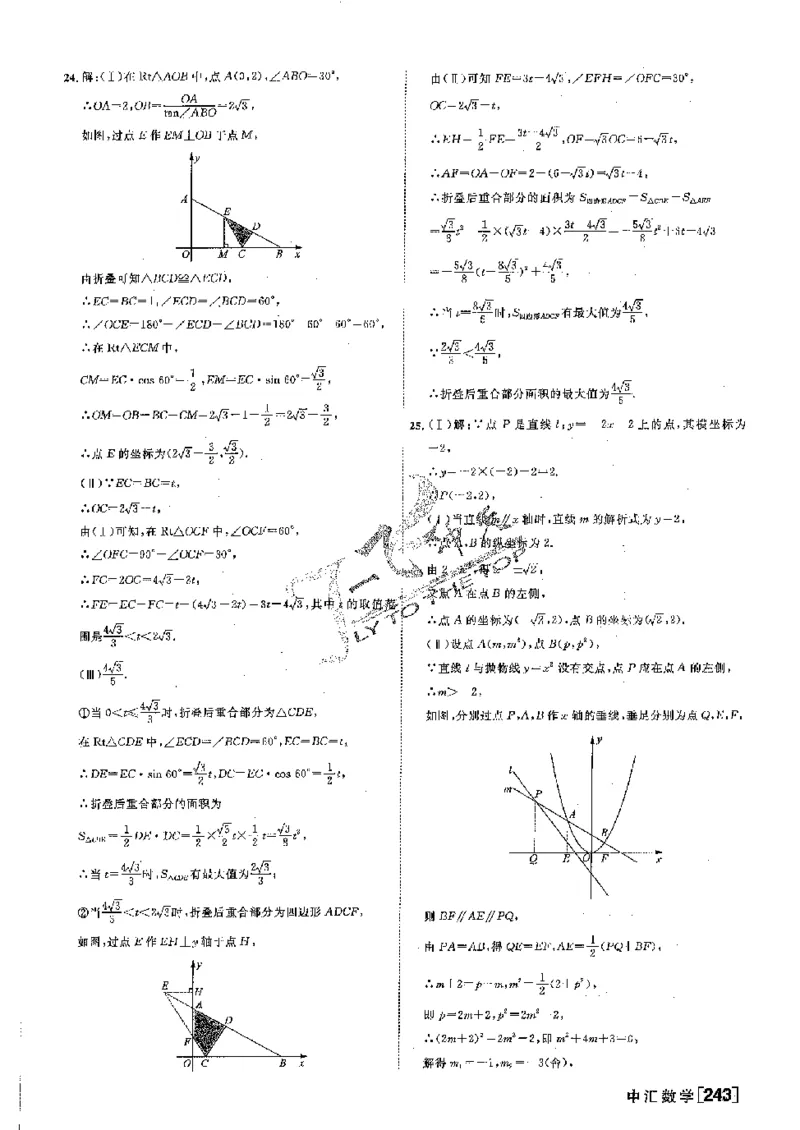 24.解:(Ⅰ)在Rt△AOB中,点A(0,2),∠ABO=30°,
∴OA=2,OB=OA/tan∠ABO=2√3,
如图,过点E作EM⊥OB于点M,
y
A
E
D
O M C B x
由折叠可知△BCD≌△ECD,
∴EC=BC=1,∠ECD=∠BCD=60°,
∴∠OCE=180°-∠ECD-∠BCD=180°-60°-60°=60°,
∴在Rt△ECM中,
CM=EC·cos 60°=1/2,EM=EC·sin 60°=√3/2,
∴OM=OB-BC-CM=2√3-1-1/2=2√3-3/2,
∴点E的坐标为(2√3-3/2,√3/2).
(Ⅱ)∵EC=BC=t,
∴OC=2√3-t,
由(Ⅰ)可知,在Rt△OCF中,∠OCF=60°,
∴∠OFC=90°-∠OCF=30°,
∴FC=2OC=4√3-2t,
∴FE=EC-FC=t-(4√3-2t)=3t-4√3,其中t的取值范
围是4√3/3<t<2√3.
(Ⅲ)4√3/5.
①当0<t≤4√3/3时,折叠后重合部分为△CDE,
在Rt△CDE中,∠ECD=∠BCD=60°,EC=BC=t,
∴DE=EC·sin 60°=√3/2t,DC=EC·cos 60°=1/2t,
∴折叠后重合部分的面积为
S△CDE=1/2DE·DC=1/2×√3/2t×1/2t=√3/8t²,
∴当t=4√3/3时,S△CDE有最大值为2√3/3;
②当4√3/3<t<2√3时,折叠后重合部分为四边形ADCF,
如图,过点E作EH⊥y轴于点H,
y
E H
A
D
F
O C B x
由(Ⅱ)可知FE=3t-4√3,∠EFH=∠OFC=30°,
OC=2√3-t,
∴EH=1/2FE=3t-4√3/2,OF=√3OC=6-√3t,
∴AF=OA-OF=2-(6-√3t)=√3t-4,
∴折叠后重合部分的面积为S四边形ADCF=S△CDE-S△AEF
=√3/8t²-1/2×(√3t-4)×3t-4√3/2=-5√3/8t²+6t-4√3
=-5√3/8(t-8√3/5)²+4√3/5,
∴当t=8√3/5时,S四边形ADCF有最大值为4√3/5,
∵2√3/3<4√3/5,
∴折叠后重合部分面积的最大值为4√3/5.
25.(Ⅰ)解:∵点P是直线l:y=-2x-2上的点,其横坐标为
-2,
∴y=-2×(-2)-2=2,
∴P(-2,2),
(ⅰ)当直线m∥x轴时,直线m的解析式为y=2,
∴点A,B的纵坐标为2.
由2=x²,得x=±√2,
又点A在点B的左侧,
∴点A的坐标为(-√2,2),点B的坐标为(√2,2).
(Ⅱ)设点A(m,m²),点B(p,p²),
∵直线l与抛物线y=x²没有交点,点P应在点A的左侧,
∴m>-2,
如图,分别过点P,A,B作x轴的垂线,垂足分别为点Q,E,F,
y
l
m P
A
B
Q E O F x
则BF∥AE∥PQ,
由PA=AB,得QE=EF,AE=1/2(PQ+BF),
∴m+2=p-m,m²=1/2(2+p²),
即p=2m+2,p²=2m²-2,
∴(2m+2)²=2m²-2,即m²+4m+3=0,
解得m₁=-1,m₂=-3(舍),
中汇数学[243]